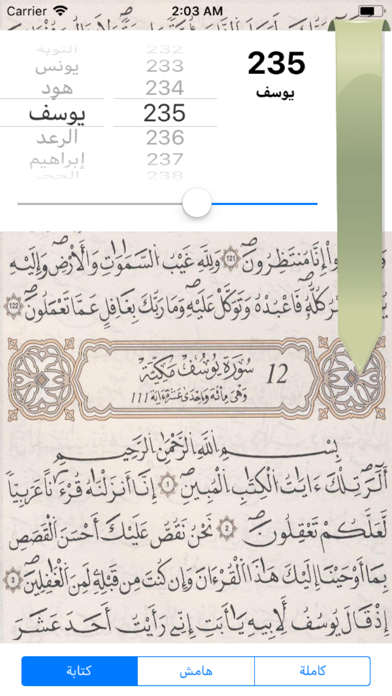 Carrier 2:03 AM
التوبة 232
يونس 233
هود 234
يوسف 235
الرعد 236
إبراهيم 237
الحجر 238
235
يوسف
وَانتَظِرُوا إِنَّا مُنتَظِرُونَ 121 وَلِلَّهِ غَيْبُ السَّمَٰوَٰتِ وَالْأَرْضِ وَإِلَيْهِ
كُلُّهُ فَاعْبُدْهُ وَتَوَكَّلْ عَلَيْهِ وَمَا رَبُّكَ بِغَٰفِلٍ عَمَّا تَعْمَلُونَ 122
12 سُورَةُ يُوسُفَ مَكِّيَّة
وَهْىَ مِائَة وَاحْدَى عَشْرَةَ ءَايَة 111
بِسْمِ اللَّهِ الرَّحْمَٰنِ الرَّحِيمِ
أَلَٓر تِلْكَ ءَايَٰتُ الْكِتَٰبِ الْمُبِينِ 1 إِنَّا أَنزَلْنَٰهُ قُرْءَٰناً عَرَبِيّاً
لَّعَلَّكُمْ تَعْقِلُونَ 2 نَحْنُ نَقُصُّ عَلَيْكَ أَحْسَنَ الْقَصَصِ
بِمَا أَوْحَيْنَا إِلَيْكَ هَٰذَا الْقُرْءَانَ وَإِن كُنتَ مِن قَبْلِهِ لَمِنَ الْغَٰفِلِينَ 3
إِذْ قَالَ يُوسُفُ لِأَبِيهِ يَٰأَبَتِ إِنِّي رَأَيْتُ أَحَدَ عَشَرَ
كاملة هامش كتابة